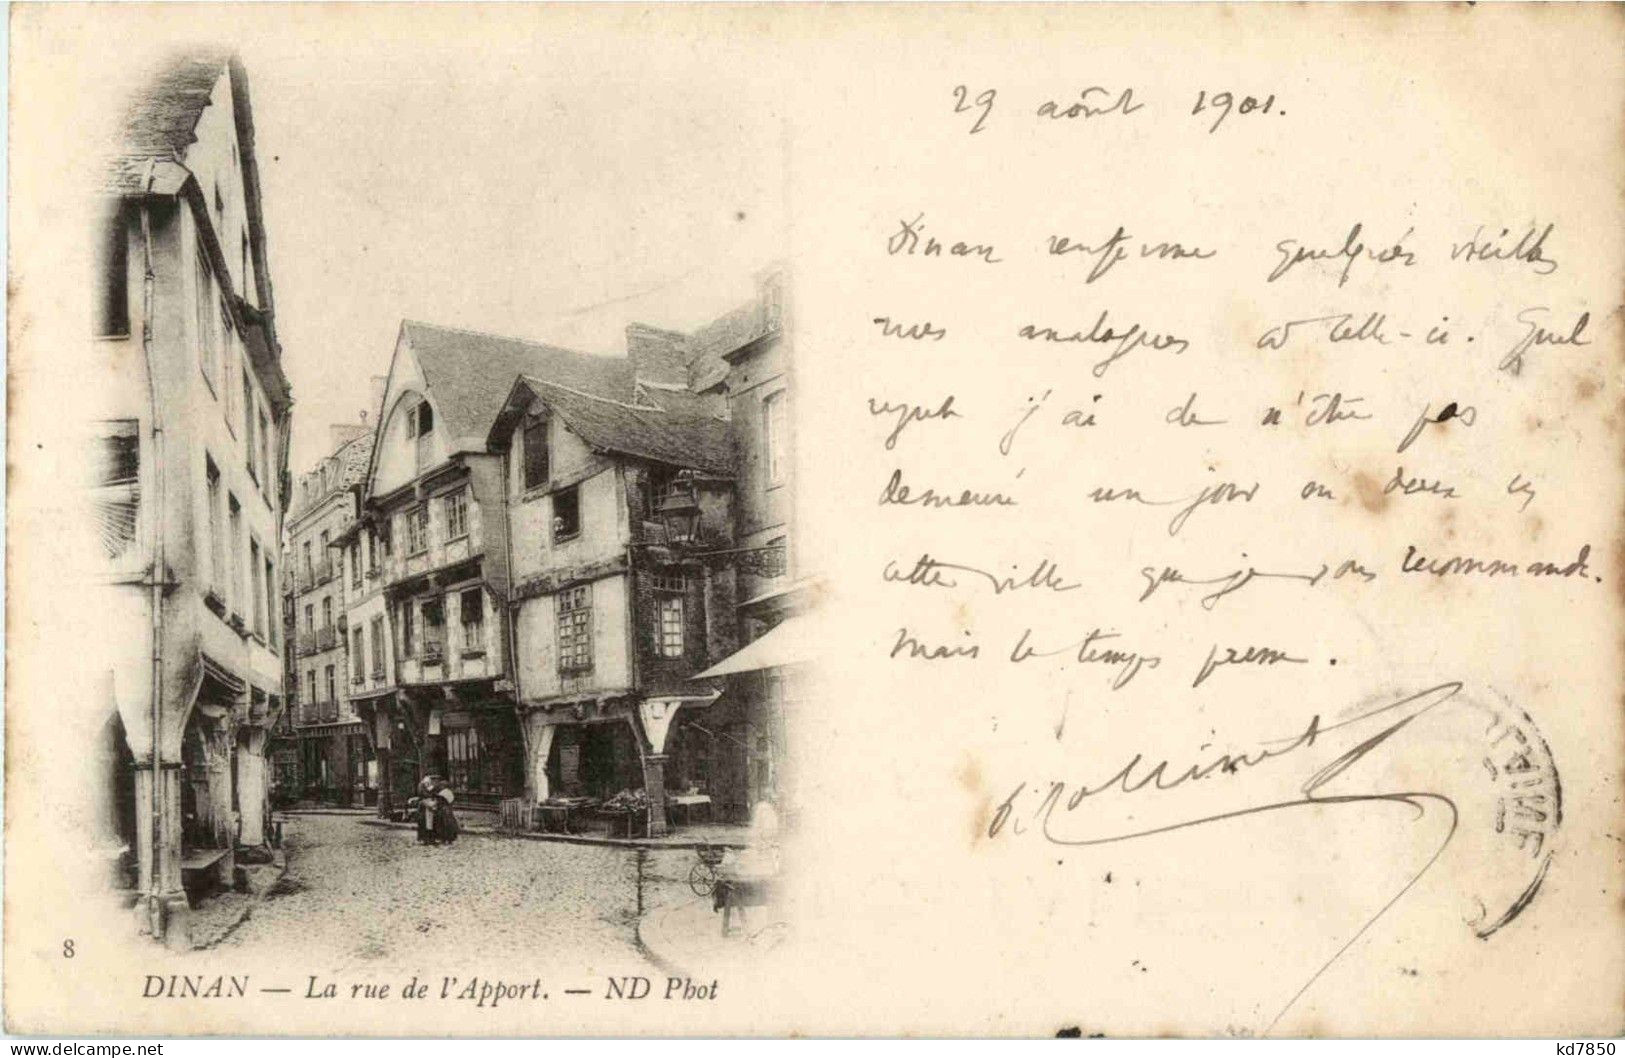 29 août 1901.
Dinan renferme quelques vieilles
rues analogues à celle-ci. Quel
regret j'ai de n'être pas
demeuré un jour ou deux en
cette ville que je vous recommande.
Mais le temps presse.
8
DINAN — La rue de l'Apport. — ND Phot
kd7850